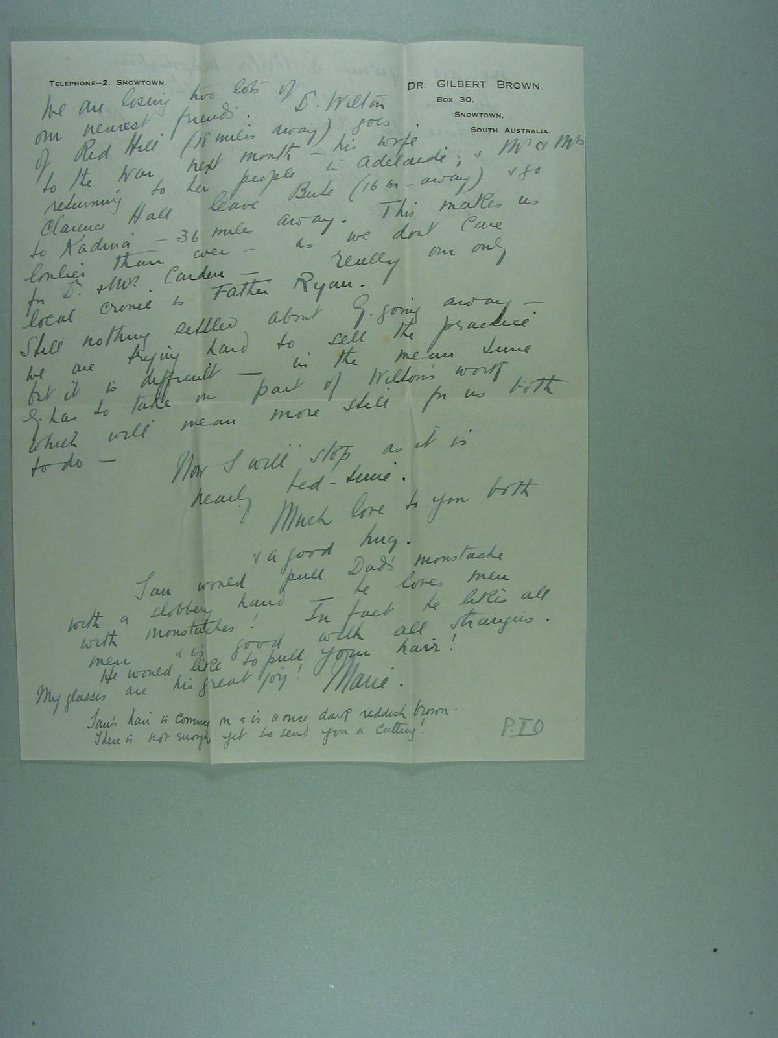 TELEPHONE—2, SNOWTOWN.
DR. GILBERT BROWN.
BOX 30,
SNOWTOWN,
SOUTH AUSTRALIA.
We are losing two lots of
our nearest friends. Dr. Wilton
of Red Hill (18 miles away) goes
to the War next month – his wife
returning to her people in Adelaide; & Mr & Mrs
Clarence Hall leave Bute (16 m. away) & go
to Kadina – 36 miles away. This makes us
lonlier than ever – as we dont care
for Dr. & Mrs. Carden – really our only
local crony is Father Ryan.
Still nothing settled about G. going away –
we are trying hard to sell the practice
but it is difficult – in the mean time
G. has to take on part of Wilton's work
which will mean more still for us both
to do –
Now I will stop as it is
nearly bed-time.
Much love to you both
& a good hug.
Ian would pull Dad's moustache
with a slobbery hand – he loves men
with moustaches! In fact he likes all
men & is good with all strangers.
He would like to pull your hair!
My glasses are his great joy! Marie.
Ian's hair is coming on & is a nice dark reddish brown.
There is not enough yet to send you a cutting!
P.T.O